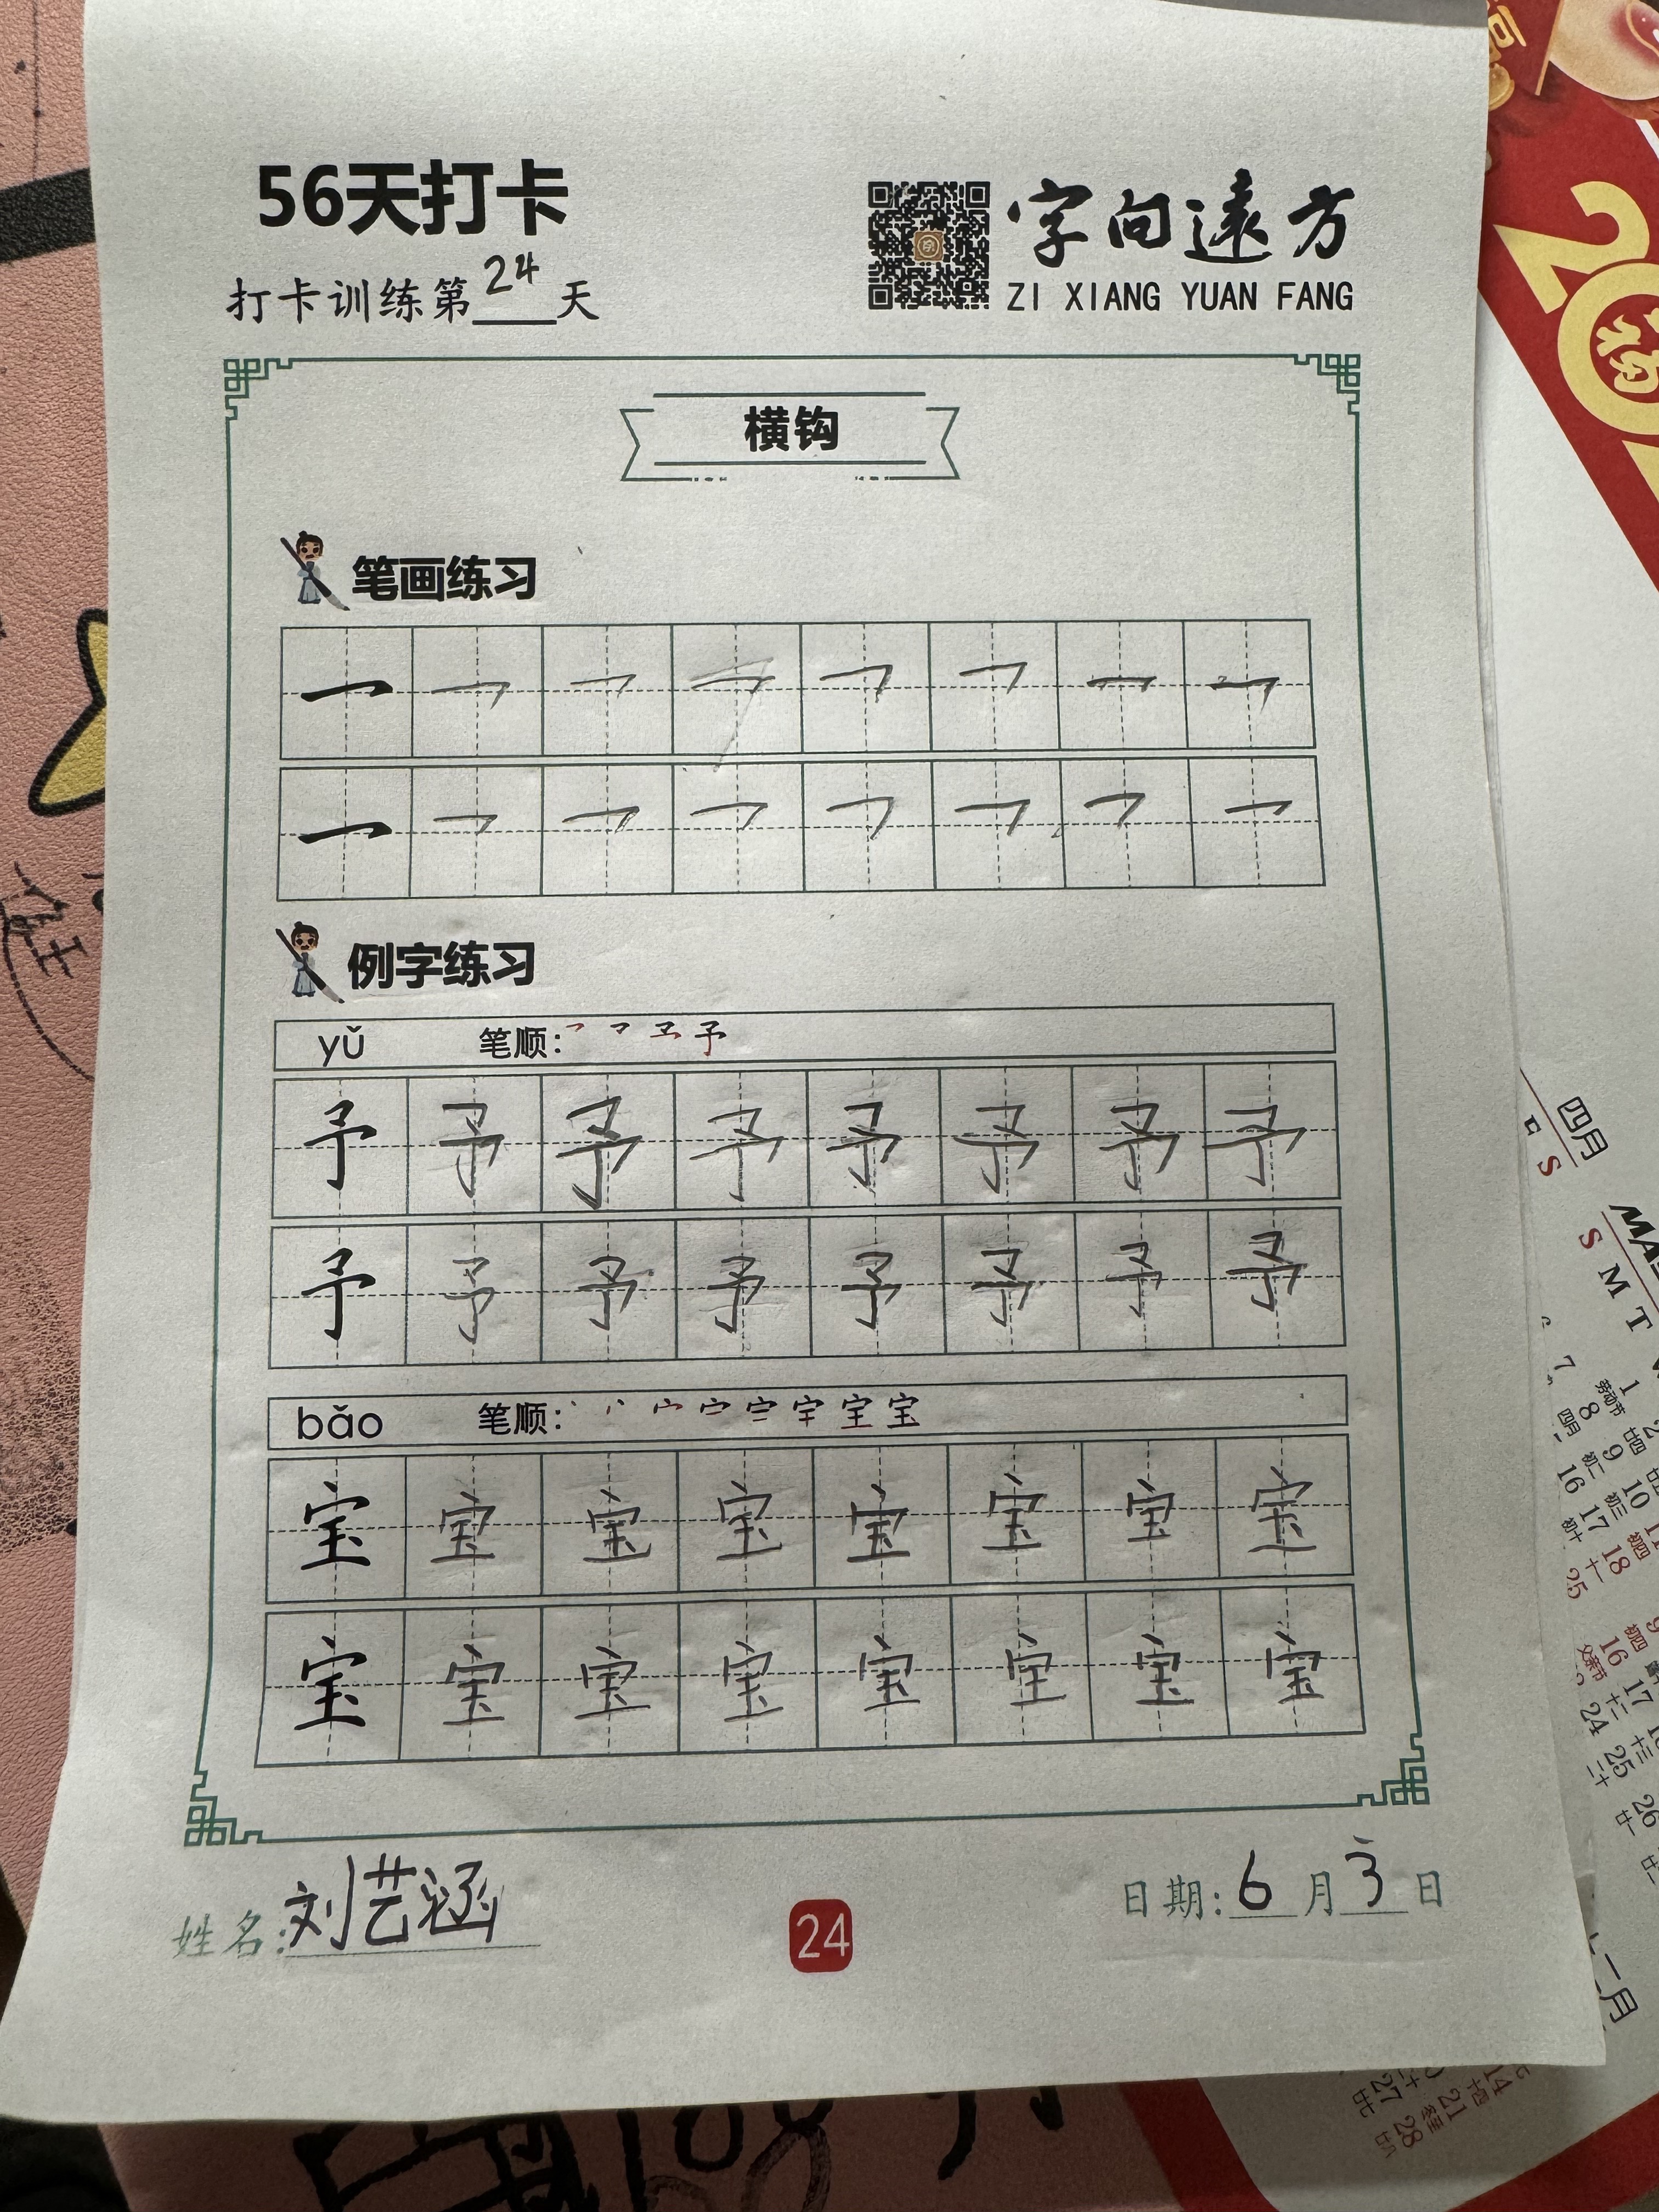 56天打卡
打卡训练第24天
字向遠方
ZI XIANG YUAN FANG
横钩
笔画练习
例字练习
yǔ 笔顺:
予 予 予 予 予 予 予 予
予 予 予 予 予 予 予 予
bǎo 笔顺:
宝 宝 宝 宝 宝 宝 宝 宝
宝 宝 宝 宝 宝 宝 宝 宝
姓名:刘艺涵
24
日期:6月3日
四月